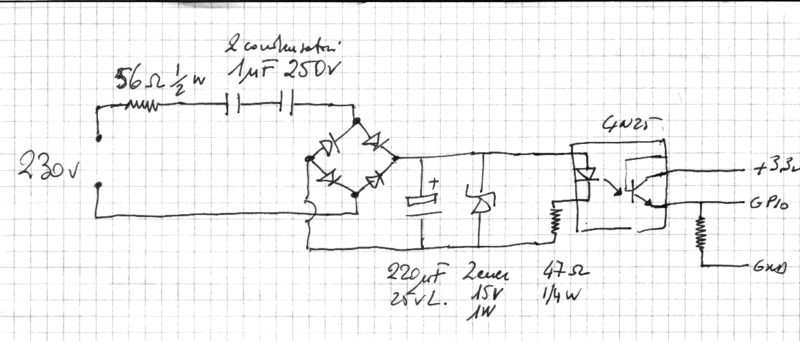 2 condensatori
56Ω ½ W
1µF 250V
4N25
230V
+3,3V
GPIO
+
220µF
25VL.
Zener
15V
1W
47Ω
1/4W
GND